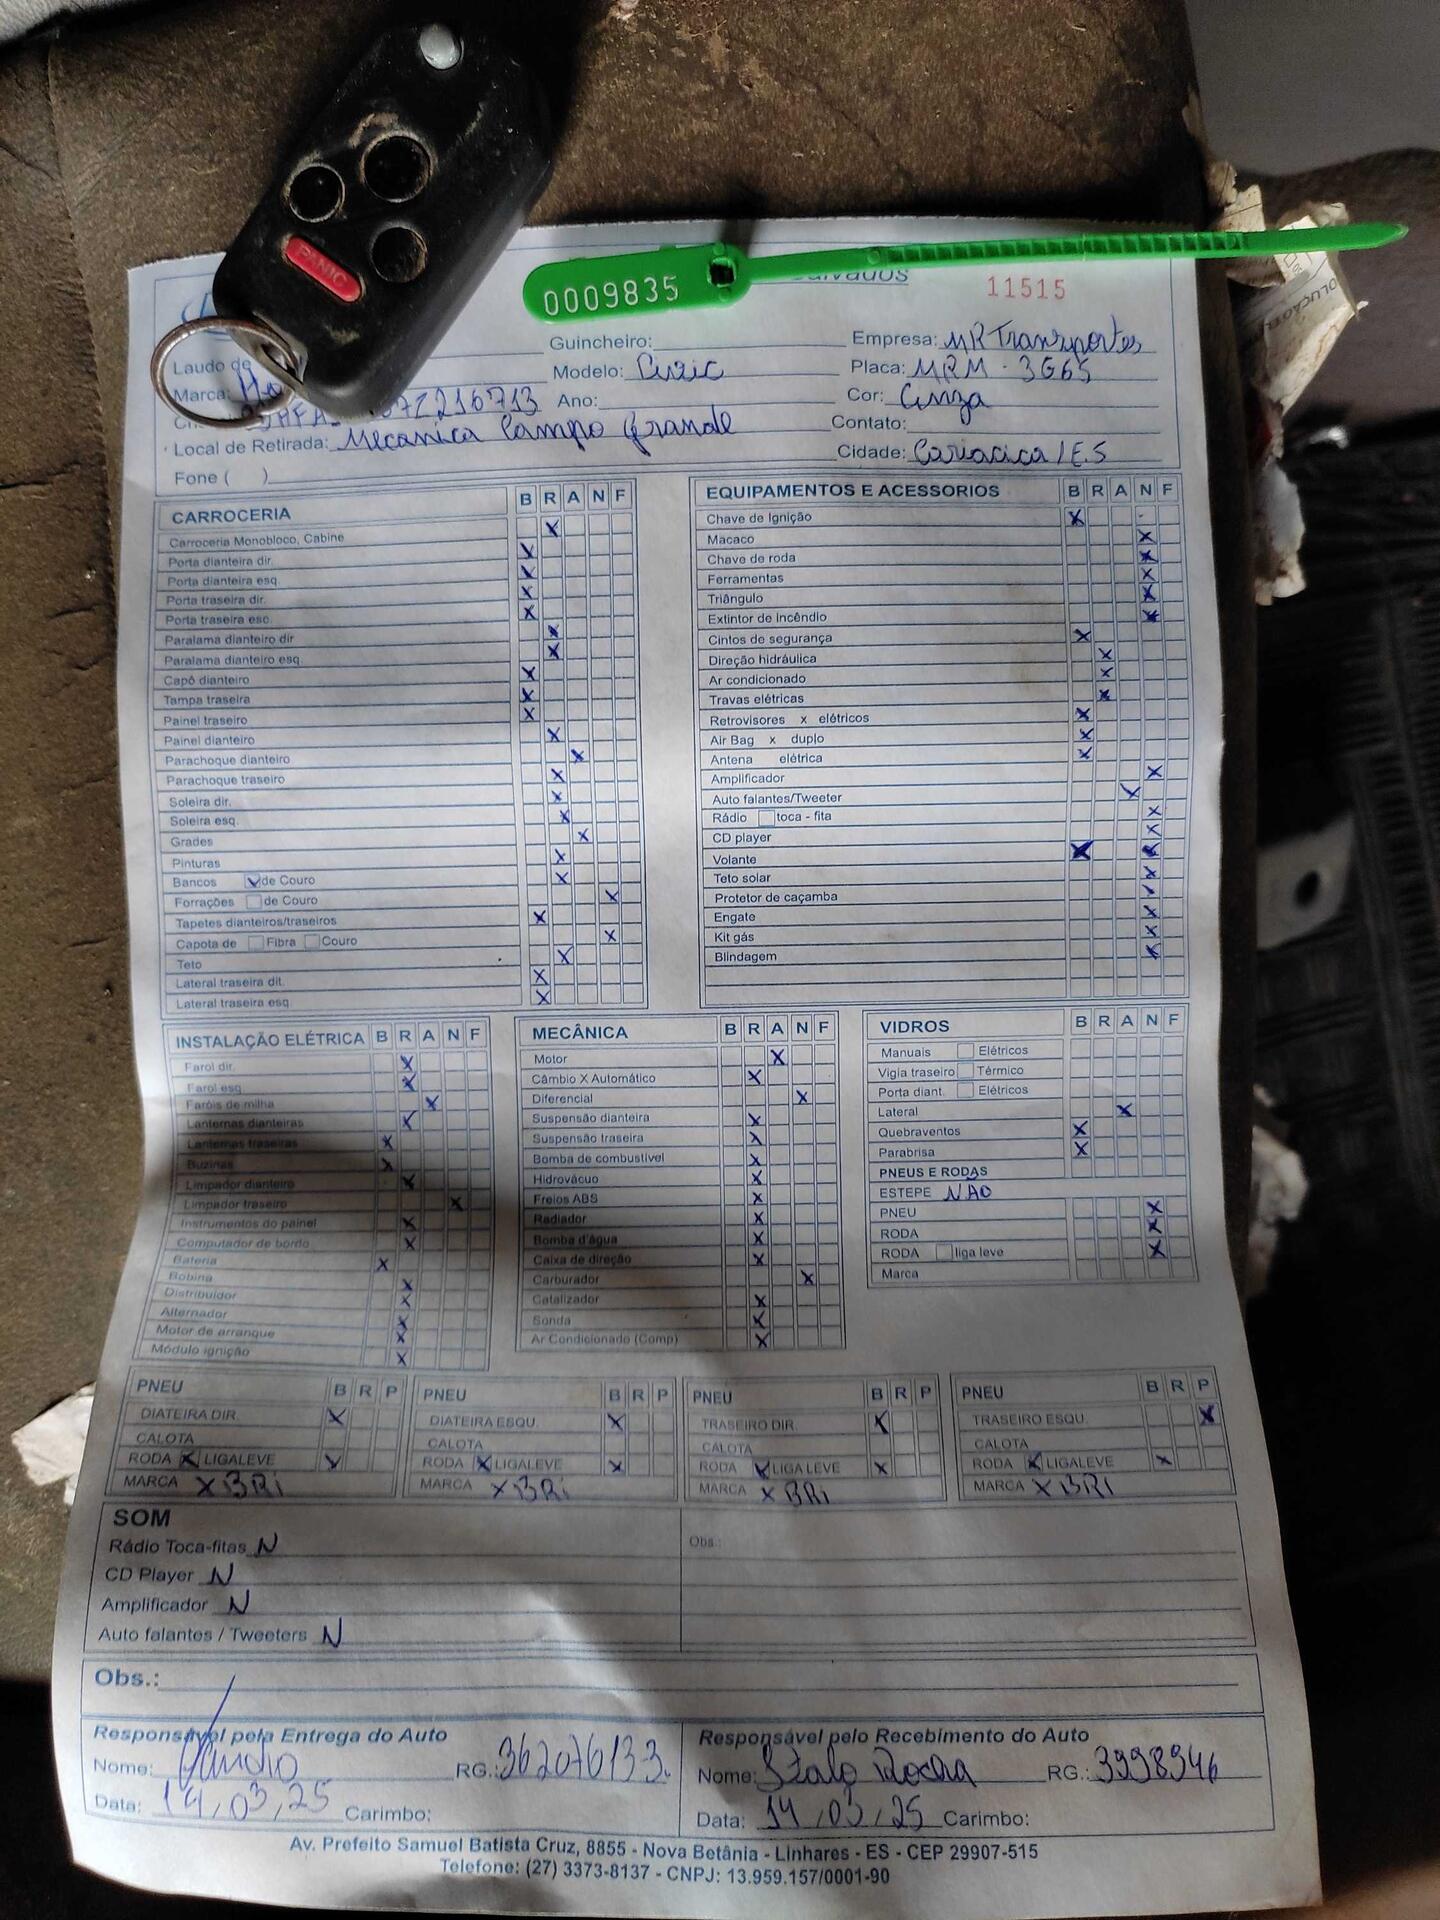 PANIC
0009835
11515
Laudo de
Guincheiro:
Empresa: MR Transportes
Marca:
Modelo: Civic
Placa: MRM - 3G65
Ano:
Cor: Cinza
Local de Retirada: Mecanica Campo Grande
Contato:
Fone ( )
Cidade: Cariacica / E.S
CARROCERIA B R A N F
Carroceria Monobloco, Cabine X
Porta dianteira dir. X
Porta dianteira esq. X
Porta traseira dir. X
Porta traseira esq. X
Paralama dianteiro dir X
Paralama dianteiro esq. X
Capô dianteiro X
Tampa traseira X
Painel traseiro X
Painel dianteiro X
Parachoque dianteiro X
Parachoque traseiro X
Soleira dir. X
Soleira esq. X
Grades X
Pinturas X
Bancos X de Couro X
Forrações de Couro X
Tapetes dianteiros/traseiros X
Capota de Fibra Couro X
Teto X
Lateral traseira dit. X
Lateral traseira esq. X
EQUIPAMENTOS E ACESSORIOS B R A N F
Chave de Ignição X
Macaco X
Chave de roda X
Ferramentas X
Triângulo X
Extintor de incêndio X
Cintos de segurança X
Direção hidráulica X
Ar condicionado X
Travas elétricas X
Retrovisores x elétricos X
Air Bag x duplo X
Antena elétrica X
Amplificador X
Auto falantes/Tweeter X
Rádio toca - fita X
CD player X
Volante X X
Teto solar X
Protetor de caçamba X
Engate X
Kit gás X
Blindagem X
INSTALAÇÃO ELÉTRICA B R A N F
Farol dir. X
Farol esq. X
Faróis de milha X
Lanternas dianteiras X
Lanternas traseiras X
Buzinas X
Limpador dianteiro X
Limpador traseiro X
Instrumentos do painel X
Computador de bordo X
Bateria X
Bobina X
Distribuidor X
Alternador X
Motor de arranque X
Módulo ignição X
MECÂNICA B R A N F
Motor X
Câmbio X Automático X
Diferencial X
Suspensão dianteira X
Suspensão traseira X
Bomba de combustível X
Hidrovácuo X
Freios ABS X
Radiador X
Bomba d'água X
Caixa de direção X
Carburador X
Catalizador X
Sonda X
Ar Condicionado (Comp) X
VIDROS B R A N F
Manuais Elétricos
Vigia traseiro Térmico
Porta diant. Elétricos
Lateral X
Quebraventos X
Parabrisa X
PNEUS E RODAS
ESTEPE NÃO
PNEU X
RODA X
RODA liga leve X
Marca
PNEU B R P
DIATEIRA DIR. X
CALOTA
RODA X LIGALEVE X
MARCA X BRI
PNEU B R P
DIATEIRA ESQU. X
CALOTA
RODA X LIGALEVE X
MARCA X BRI
PNEU B R P
TRASEIRO DIR. X
CALOTA
RODA X LIGA LEVE X
MARCA X BRI
PNEU B R P
TRASEIRO ESQU. X
CALOTA
RODA X LIGALEVE X
MARCA X BRI
SOM
Rádio Toca-fitas N
CD Player N
Amplificador N
Auto falantes / Tweeters N
Obs.:
Obs.:
Responsável pela Entrega do Auto
Nome: RG.: 362076133
Data: 14/03/25 Carimbo:
Responsável pelo Recebimento do Auto
Nome: Italo Rocha RG.: 3998946
Data: 14/03/25 Carimbo:
Av. Prefeito Samuel Batista Cruz, 8855 - Nova Betânia - Linhares - ES - CEP 29907-515
Telefone: (27) 3373-8137 - CNPJ: 13.959.157/0001-90